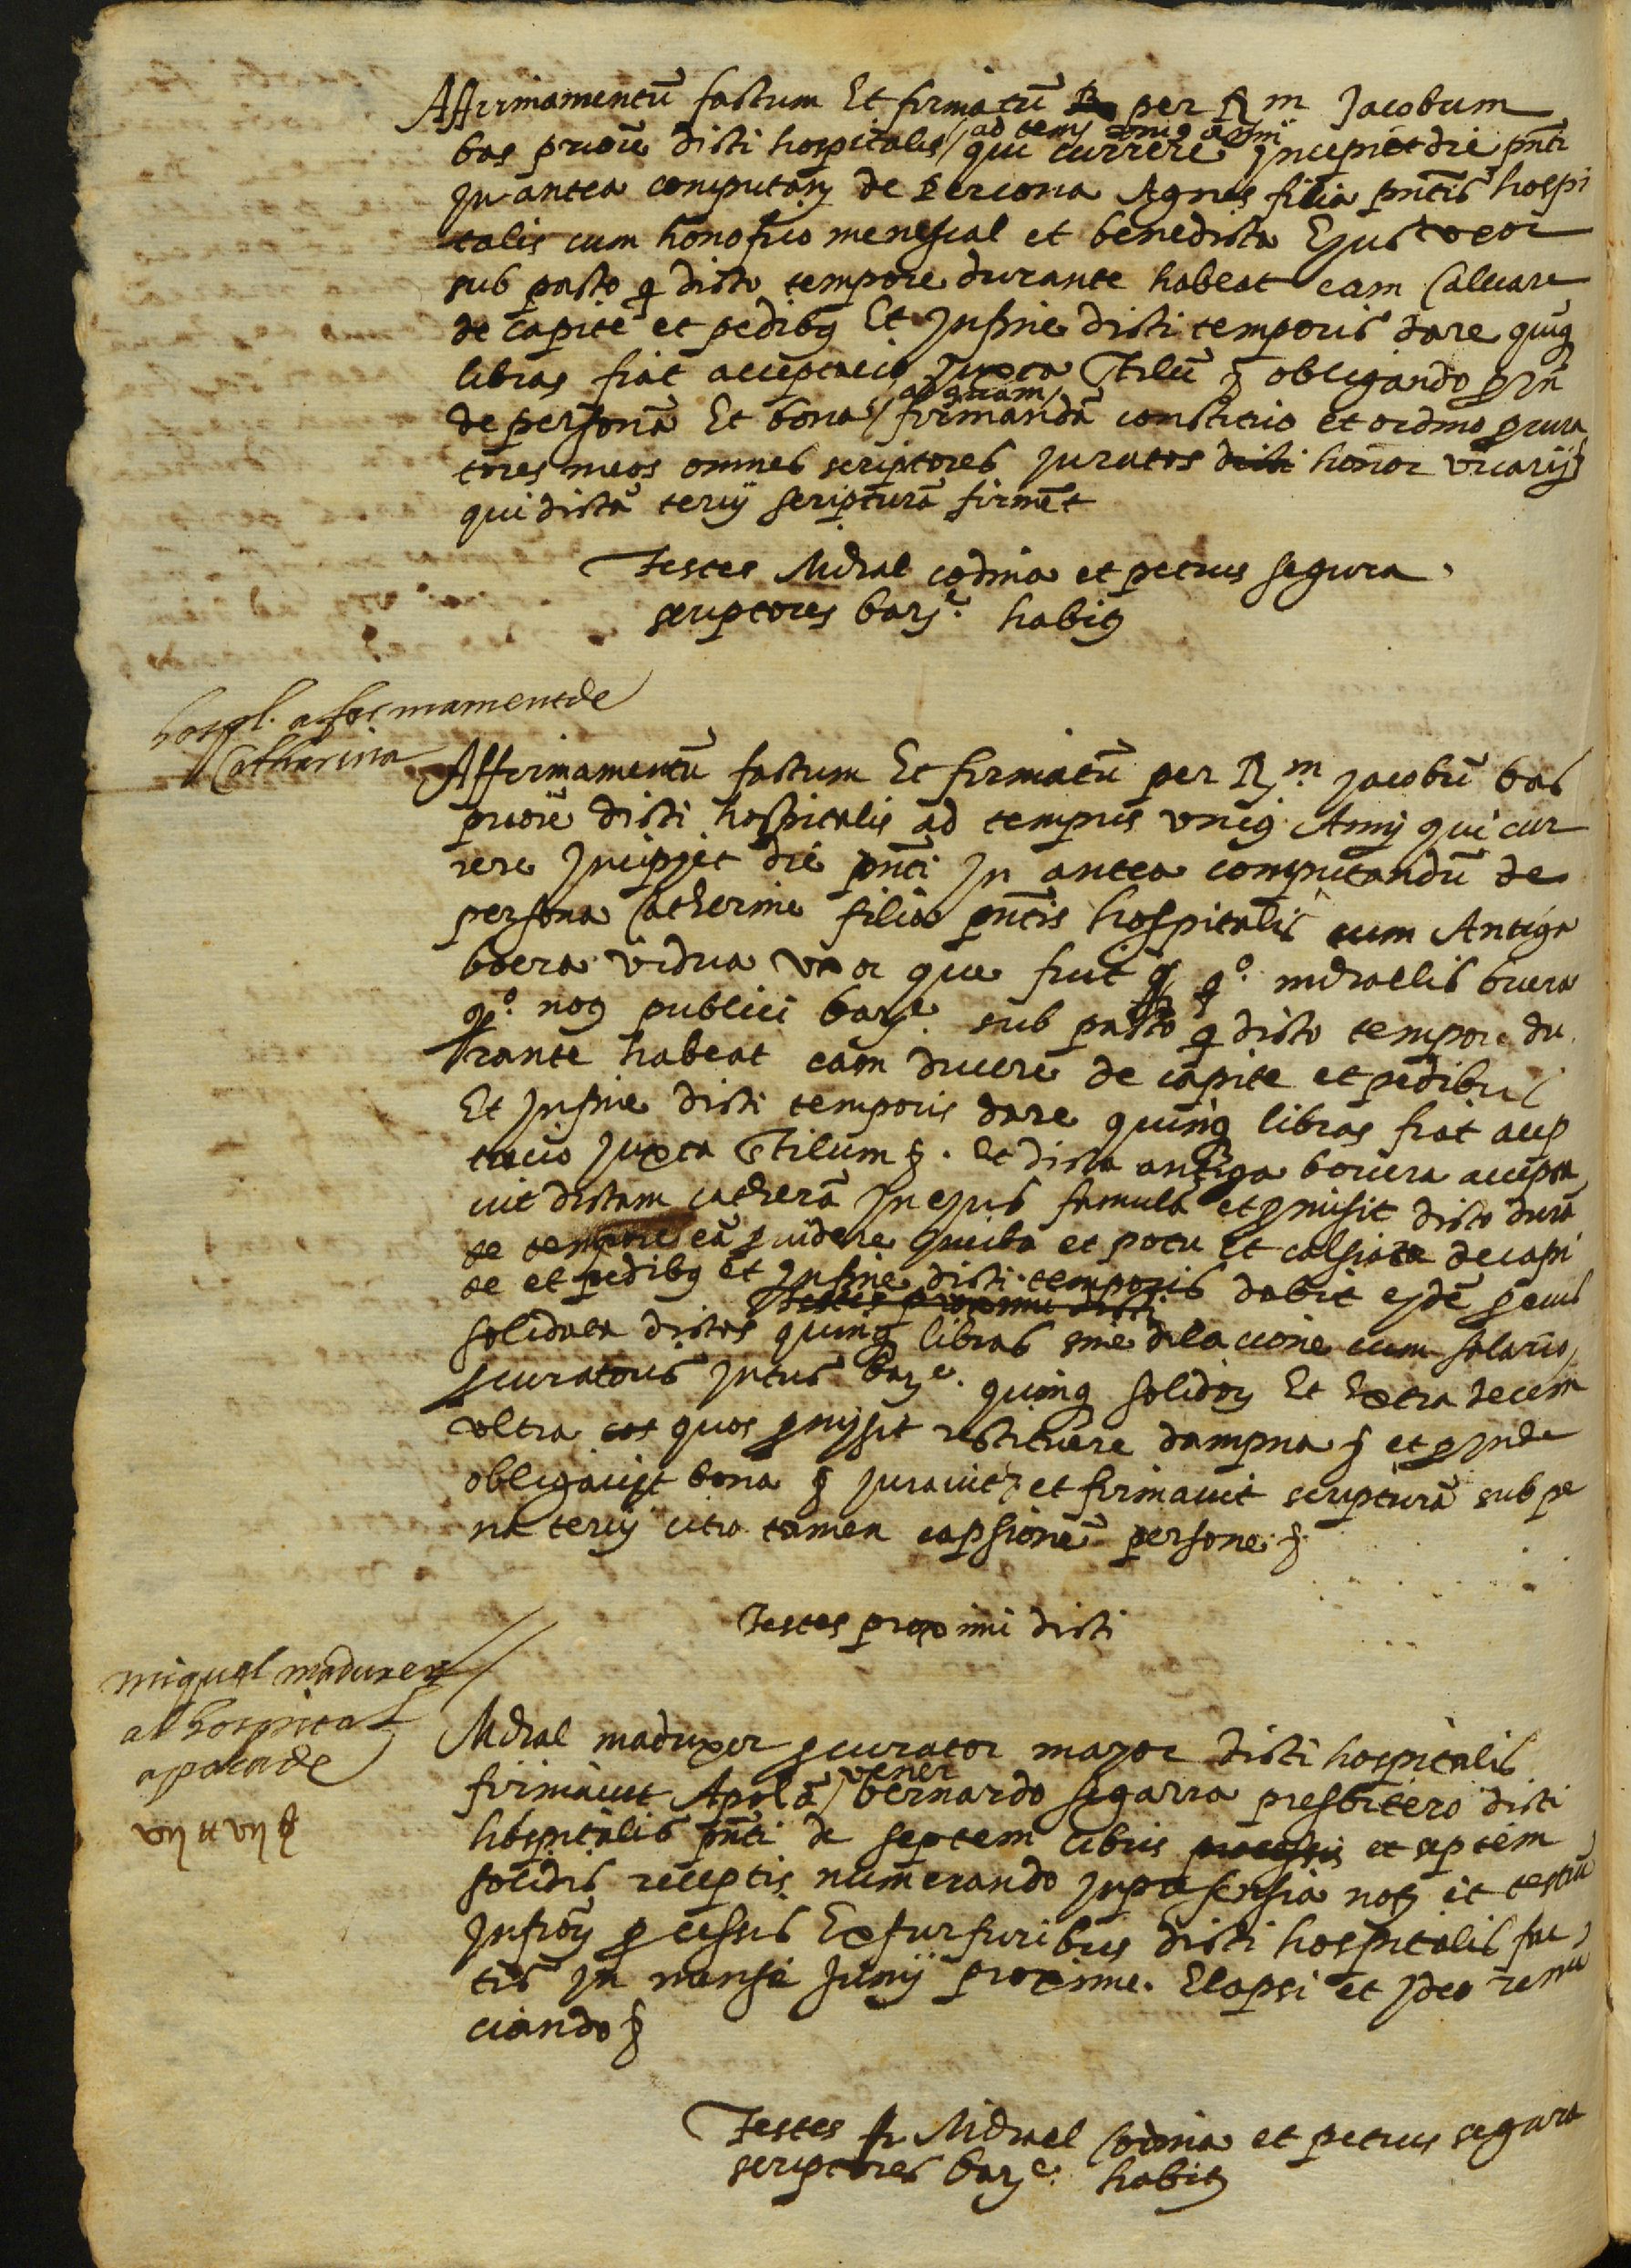 Affirmamentū factum Et firmatū per Rm Jacobum
bas priorē dicti hospitalis / ad temps unius anni / qui currere Incipiet die pñti
In antea computanđ de persona Agnes filia pñtis hospi
talis cum honofrio menescal et benedicta Ejus uxor
sub pacto q dicto tempore durante habeat eam calceare
de capite et pedibus Et Infine dicti temporis dare quinq
libras fiat acceptacio Juxta stilū & obligando proin
de personā Et bona / ad quam / firmandā constituo et ordino procura
tores meos omnes scriptores juratos dicti honor vicarij
qui dictā tercij scripturā firmēt
Testes Michael codina et petrus segura
scriptores barñe habitₒ
hospl. afermament de
Catherina
Affirmamentū factum Et firmatū per Rm Jacobū bas
priorē dicti hospitalis ad tempus unius Annj qui cur
rere Incipjet die pñti In antea computandū de
persona Catherine filia pñtis hospitalis cum Antiga
boera vidua uxor que fuit qº. michaelis buera
qº. noṯ publici barñe. sub pacto q dicto tempore du
rante habeat eam ducere de capite et pedibus
Et Infine dicti temporis dare quinq libras fiat accep
tacio Juxta stilum &. Et dicta antiga bovera accepta
vit dictam catherā In ejus famulā et promisit dicto durā
te tempore eā providere In cibo et potu Et calsiata de capi
te et pedibus et Infine dicti temporis dabit ejdē per eius
Testes proximi dicti
solidata dictas quinq libras sine dilacione cum salario
procuratoris Intus barñe. quinq solidoꝝ Et Extra decem
ultra eos quos promjsit restituere dampna & et proinde
obligavjt bona & juravit & et firmavit scripturā sub pe
na tercij citra tamen capsionē persone &
Testes proximi dicti
miquel maduxer
al hospital
apocade
vij ℔ vij ß
Michael maduxer procurator major dicti hospitalis
firmavit Apocā / vener / bernardo segarra presbitero dicti
hospitalis pñti de septem libris et septem
solidis receptis numerando In presensia noṯ et testiū
Infrōꝝ processis Ex furfuribus dicti hospitalis fac
tis In mense Junij proxime. Elapsi et Ideo renū
ciando &
Testes Michael codina et petrus segura
scriptores barñe habitₒ